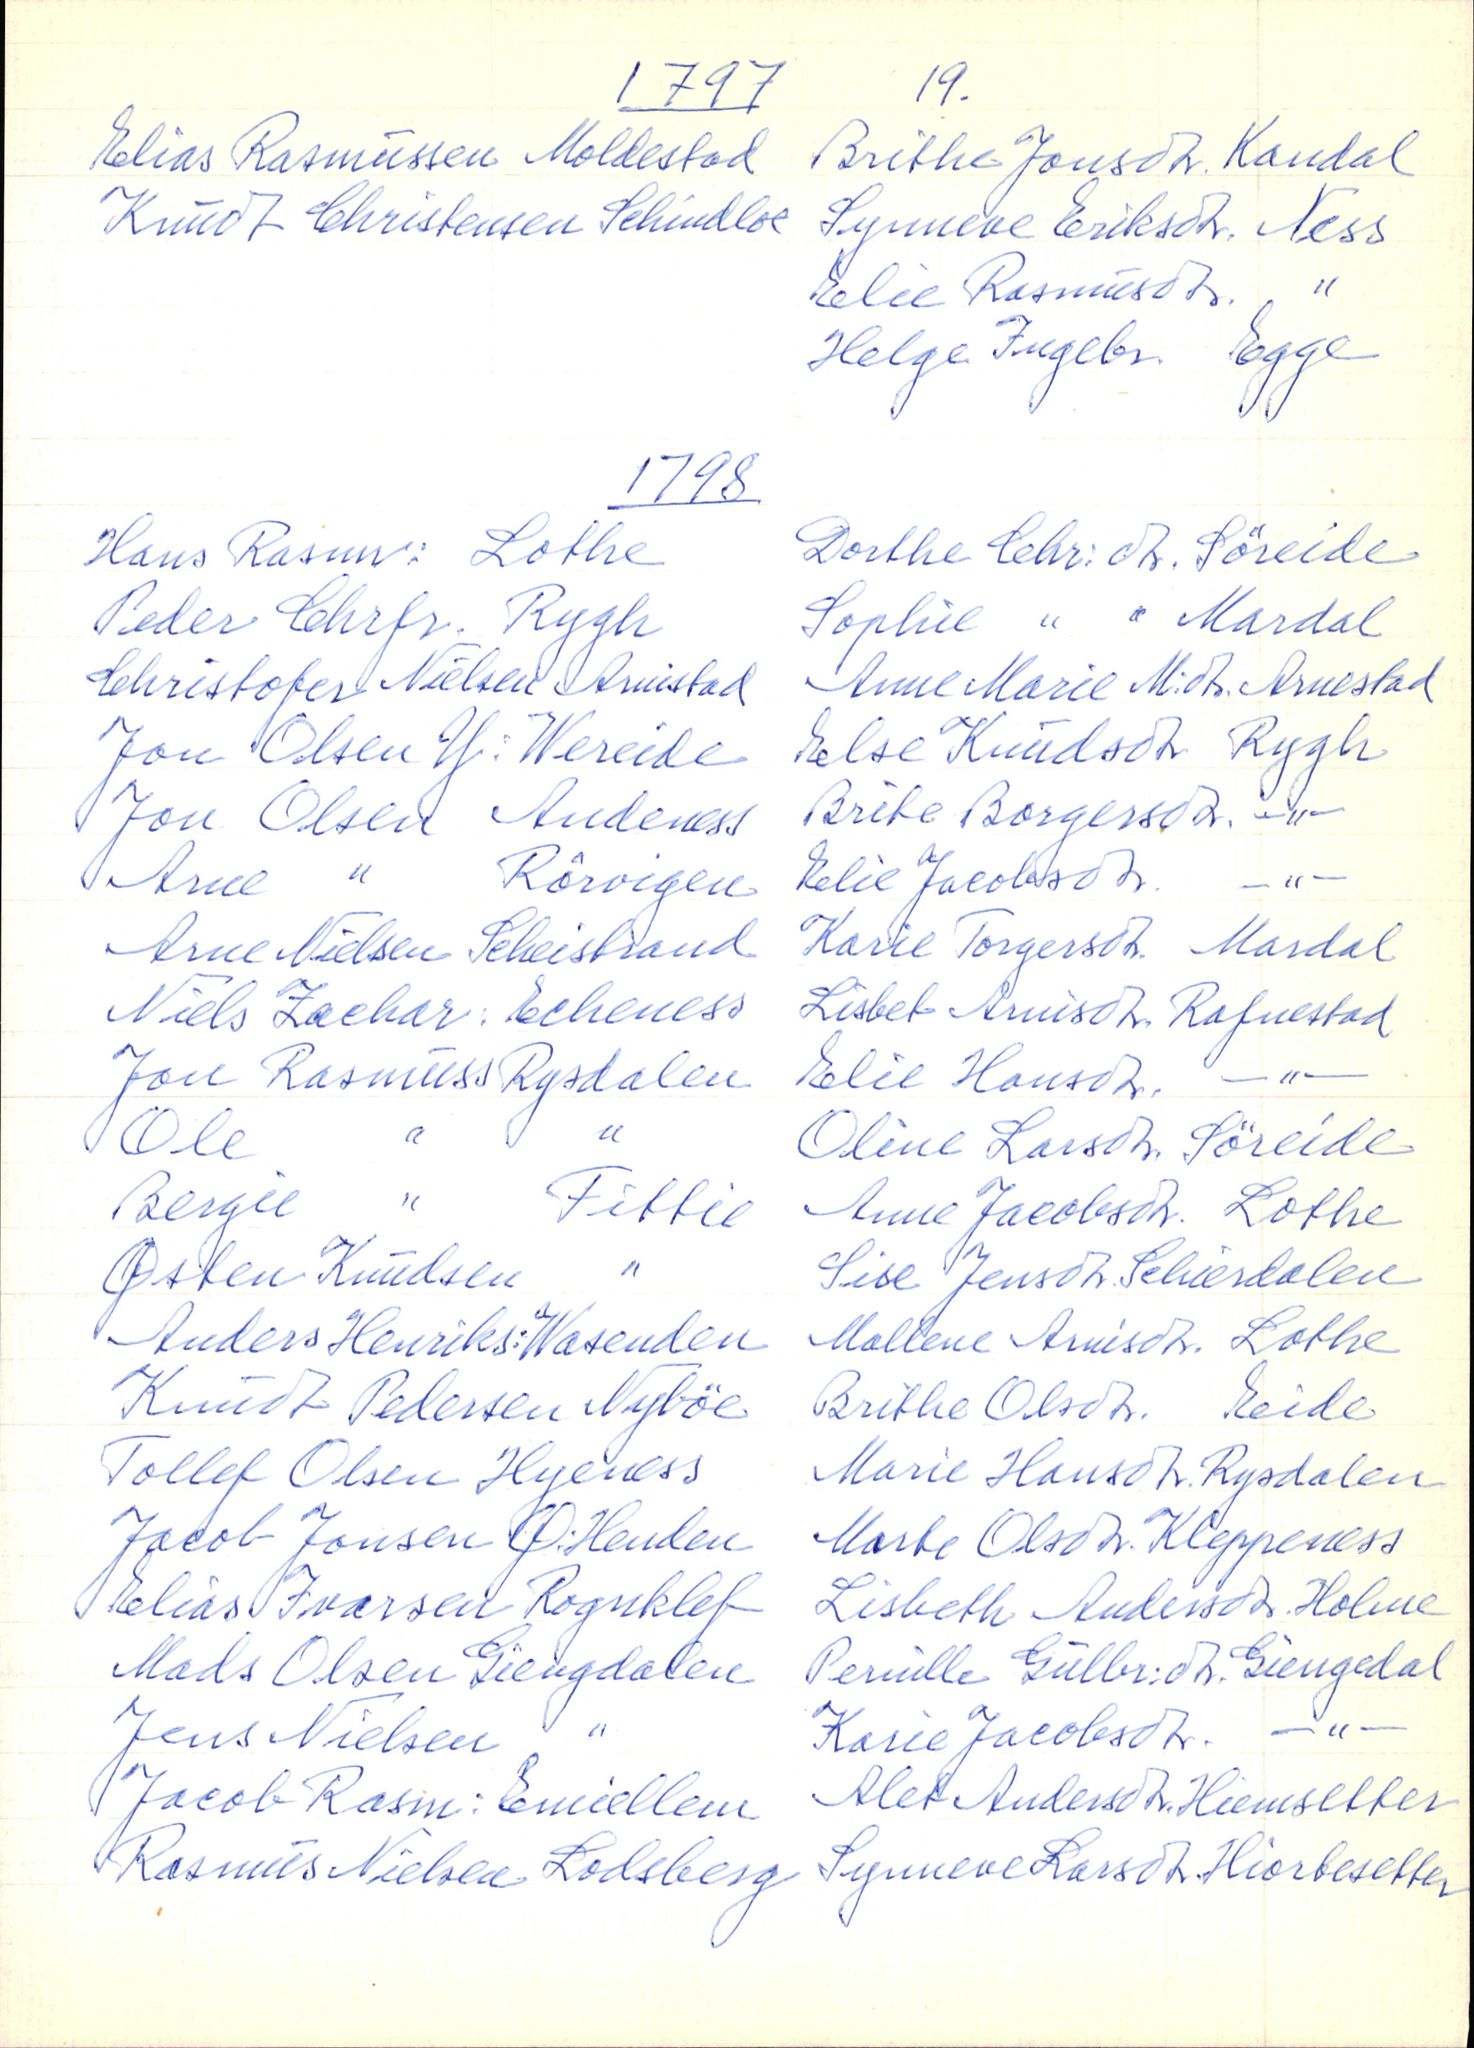 1797 19.
Elias Rasmussen Moldestad Brithe Jonsdtr. Kandal
Knudt Christensen Schindloe Synneve Eriksdtr. Ness
Elie Rasmusdtr. "
Helge Ingebr. Egge
1798
Hans Rasm: Lothe Dorthe Chr: dtr. Söreide
Peder Chrfr. Rygh Sophie " " Mardal
Christofer Nielsen Arnistad Anne Marie M: dtr. Arnestad
Jon Olsen Y: Wereide Else Knudsdtr Rygh
Jon Olsen Andeness Brite Borgersdtr. -"-
Arne " Rörvigen Elie Jacobsdtr. -"-
Arne Nielsen Scheistrand Karie Torgersdtr. Mardal
Niels Zachar: Echeness Lisbet Arnisdtr. Rafnestad
Jon Rasmuss Rysdalen Elie Hansdtr. -"-
Ole " " Oline Larsdtr. Söreide
Bergie " Fittie Anne Jacobsdtr. Lothe
Østen Knudsen " Sise Jensdtr. Schierdalen
Anders Henriks: Wasenden Mallene Arnisdtr. Lothe
Knudt Pedersen Nyböe Brithe Olsdtr. Eide
Tollef Olsen Hyeness Marie Hansdtr. Rysdalen
Jacob Jonsen Ø: Henden Marte Olsdtr. Kleppeness
Elias Ivarsen Rognklef Lisbeth Andersdtr. Holme
Mads Olsen Giengdalen Pernille Gullbr: dtr. Giengedal
Jens Nielsen " Karie Jacobsdtr. -"-
Jacob Rasm: Emiellem Alet Andersdtr. Hiemsetter
Rasmus Nielsen Lodsberg Synneve Larsdtr. Hiortesetter